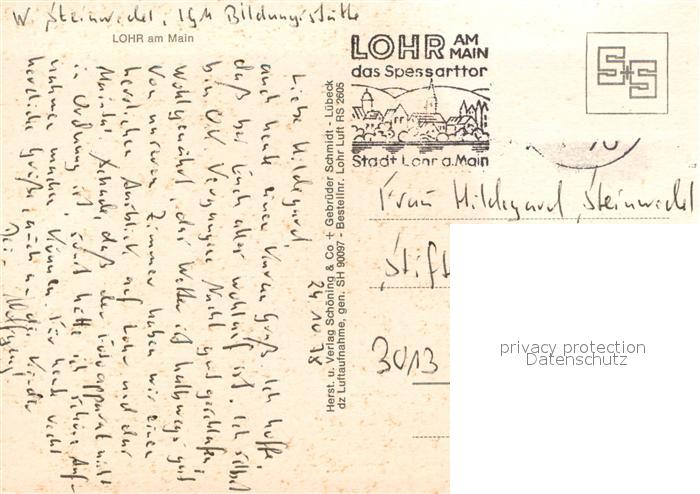 W. Steinwedel, IGM Bildungsstätte
LOHR am Main
24.10.78
Liebe Hildegard,
auch heute einen kurzen Gruß. Ich hoffe,
daß bei Euch alles wohlauf ist. Ich selbst
bin O.K. Vergangene Nacht gut geschlafen,
wohlgenährt, das Wetter ist halbwegs gut
Von unserem Zimmer haben wir einen
herrlichen Ausblick auf Lohr und das
Maintal. Schade, daß der Fotoapparat nicht
in Ordnung ist, sonst hätte ich schöne Auf-
nahmen machen können. Für heute recht
herzliche Grüße, auch an die Kinder
Dein Wolfgang
Herst. u. Verlag Schöning & Co + Gebrüder Schmidt - Lübeck
dz Luftaufnahme, gen. SH 90097 - Bestellnr. Lohr Luft RS 2605
LOHR AM MAIN
das Spessarttor
Stadt Lohr a. Main
S+S
Frau Hildegard Steinwedel
Stift
3013
privacy protection
Datenschutz